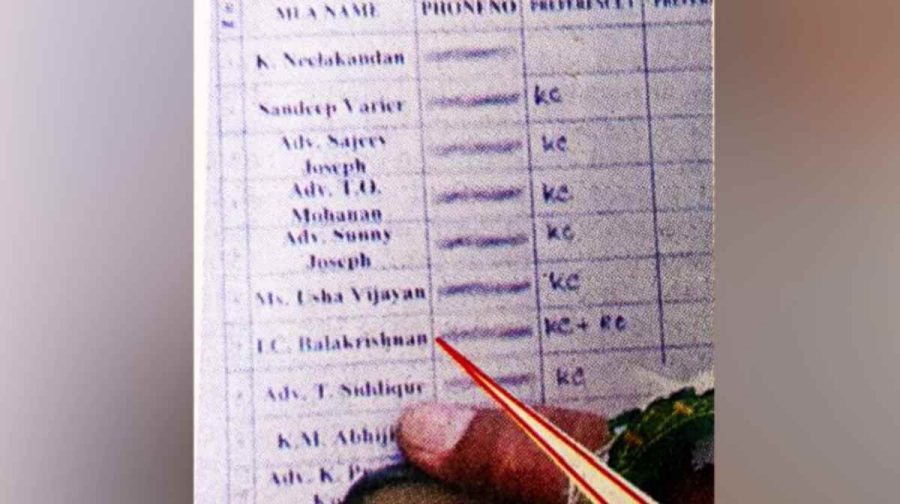 MLA NAME PHONE NO PREFERENCE 1
K. Neelakandan
Sandeep Varier KC
Adv. Sajeev KC
Joseph
Adv. T.O. KC
Mohanan
Adv. Sunny KC
Joseph
Ms. Usha Vijayan KC
I.C. Balakrishnan KC + RC
Adv. T. Siddique KC
K.M.
Adv. K.